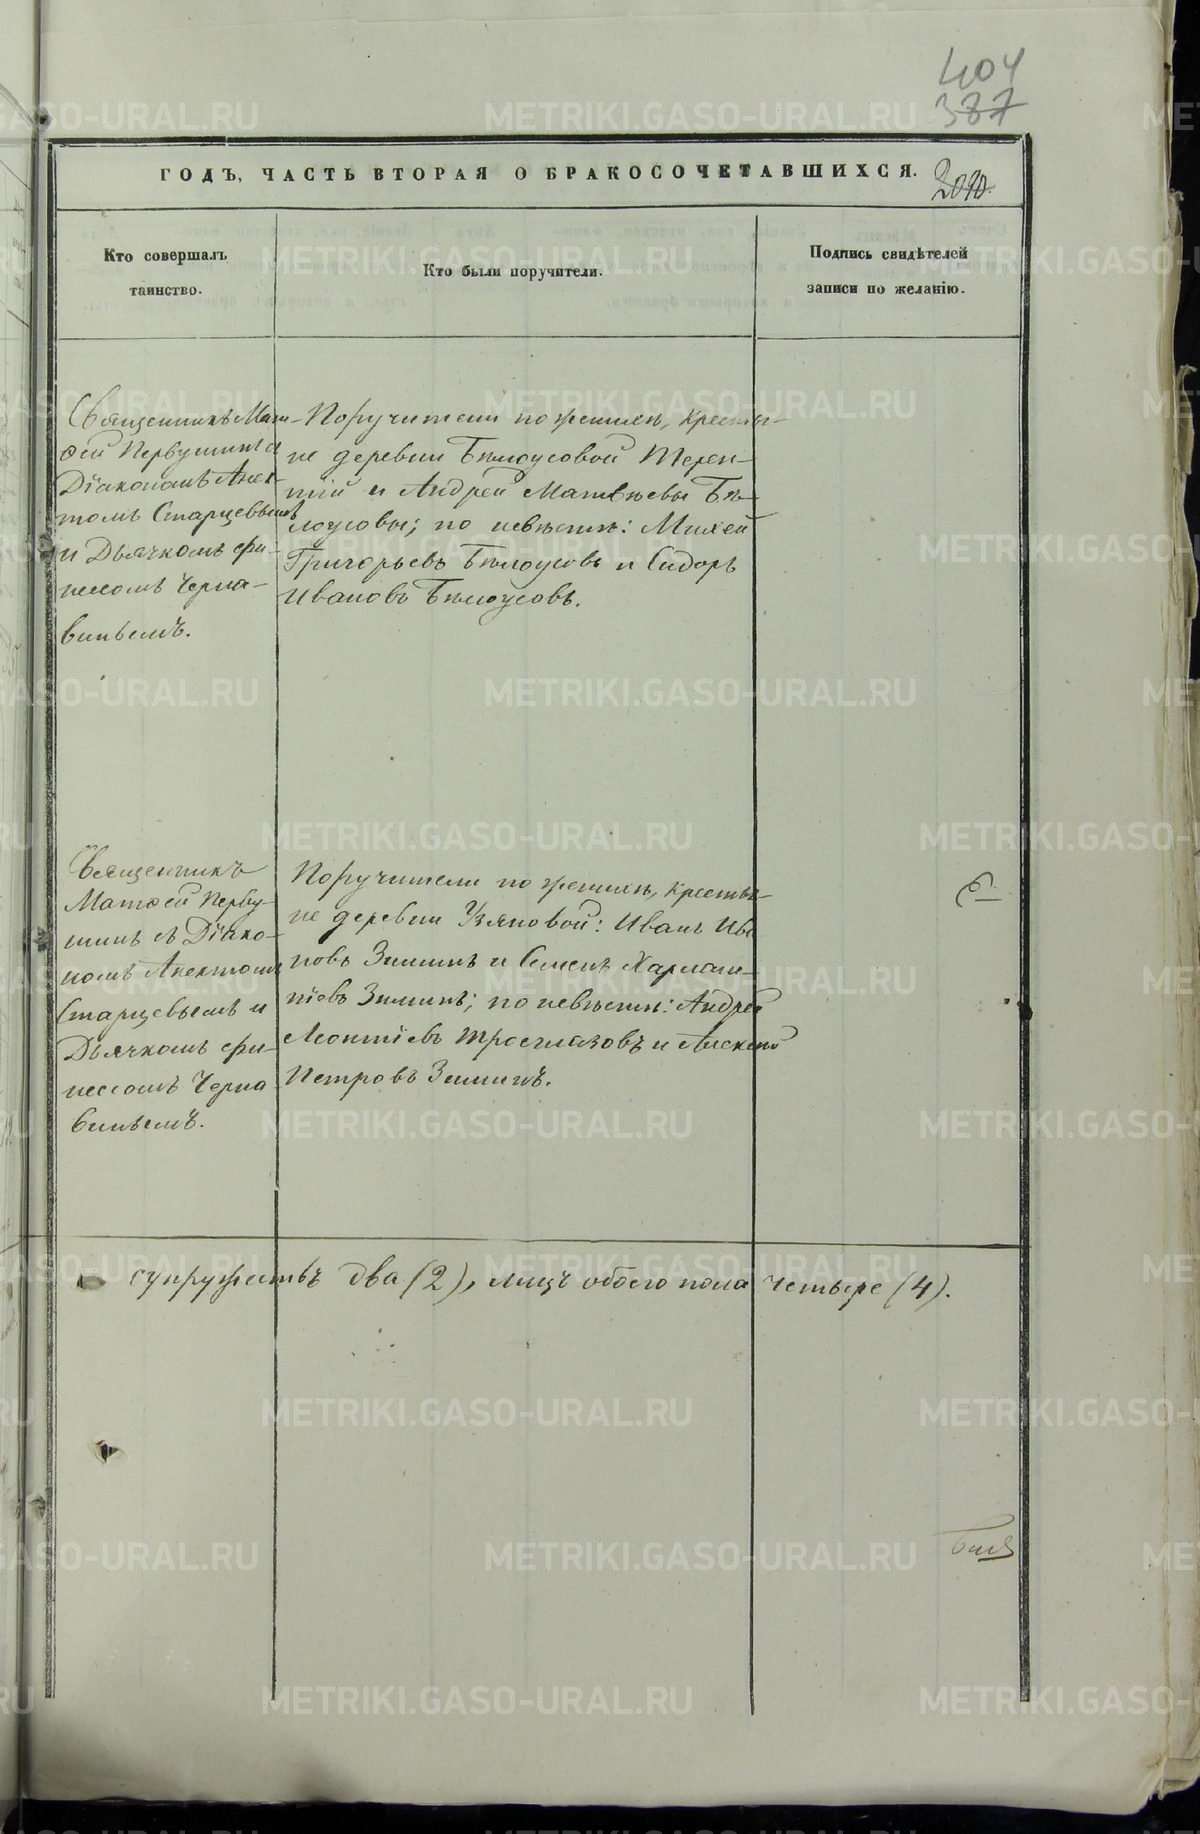 404
387
ГОДЪ, ЧАСТЬ ВТОРАЯ О БРАКОСОЧЕТАВШИХСЯ.
Кто совершалъ
таинство.
Кто были поручители.
Подпись свидѣтелей
записи по желанію.
Священникъ Мат-
ѳей Первушинъ съ
Діакономъ Анек-
томъ Старцевымъ
и Дьячкомъ Фи-
нессомъ Черна-
винымъ.
Поручители по женихѣ, крестья-
не деревни Бѣлоусовой Терен-
тій и Андрей Матвѣевы Бѣ-
лоусовы; по невѣстѣ: Михей
Григорьевъ Бѣлоусовъ и Сидоръ
Ивановъ Бѣлоусовъ.
Священникъ
Матѳей Перву-
шинъ съ Діако-
номъ Анектомъ
Старцевымъ и
Дьячкомъ Фи-
нессомъ Черна
винымъ.
Поручители по женихѣ, крестья-
не деревни Узяновой: Иванъ Ива
новъ Зиминъ и Семенъ Харлам-
піевъ Зиминъ; по невѣстѣ: Андрей
Леонтіевъ Троеглазовъ и Алексѣй
Петровъ Зиминъ.
супружествъ два (2), лицъ обоего пола четыре (4).
METRIKI.GASO-URAL.RU